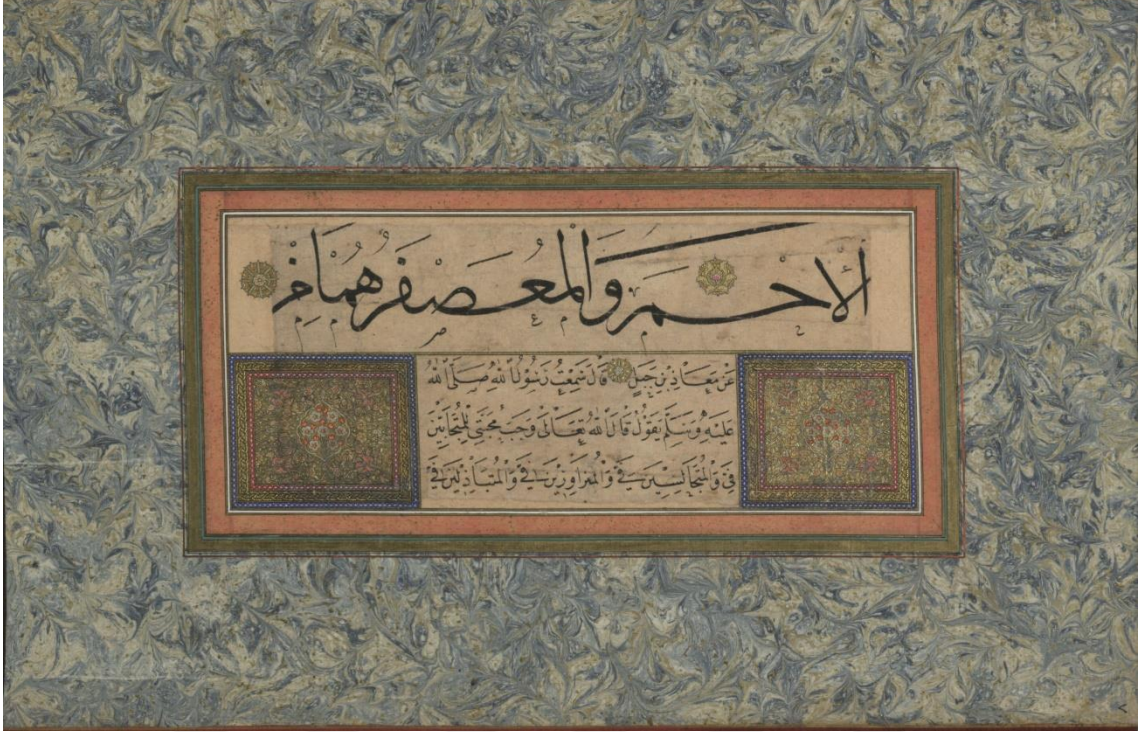 الأحمر والمعصفر هما من
عن معاذ بن جبل قال سمعت رسول الله صلى الله
عليه وسلم يقول قال الله تعالى وجبت محبتي للمتحابين
في والمتجالسين في والمتزاورين في والمتباذلين في
٧